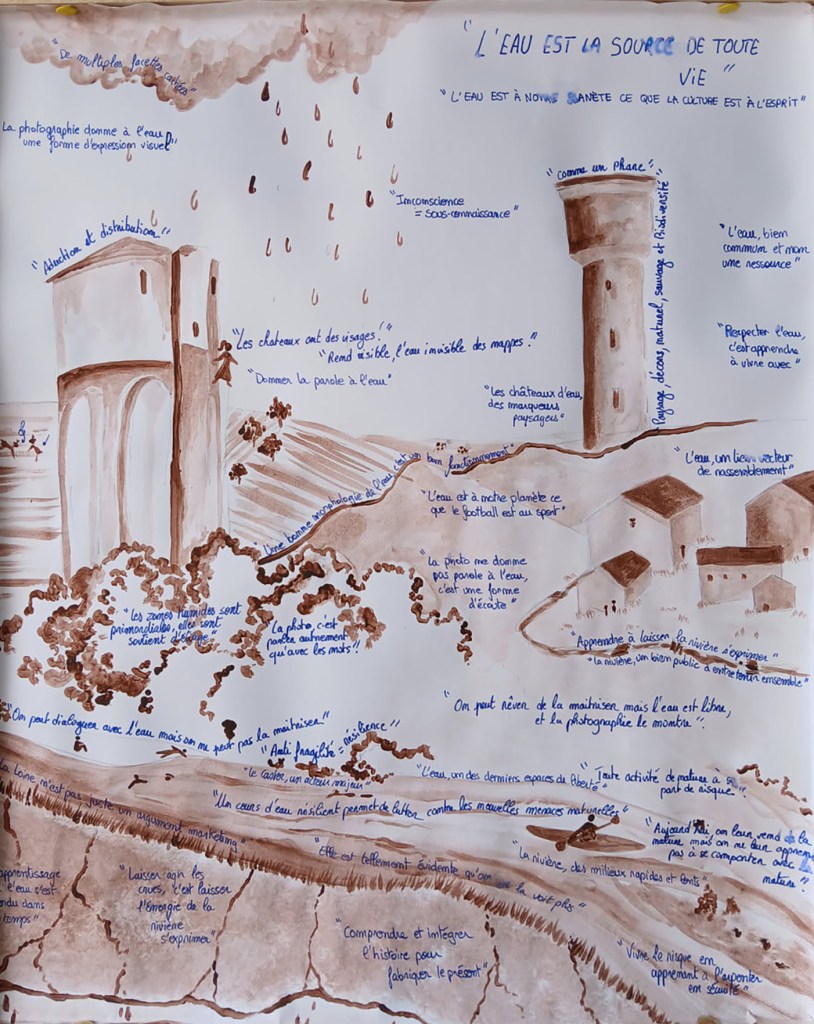 "L'EAU EST LA SOURCE DE TOUTE
VIE"
"L'EAU EST À NOTRE PLANÈTE CE QUE LA CULTURE EST À L'ESPRIT"
"De multiples facettes cachées"
La photographie donne à l'eau
une forme d'expression visuel"
"Inconscience
= sous-connaissance"
"Comme un phare"
"Paysage, décors, naturel, sauvage et Biodiversité"
"L'eau, bien
commun et non
une ressource"
"Adduction et distribution"
"Les chateaux ont des visages!"
"Rend visible, l'eau invisible des nappes."
"Donner la parole à l'eau"
"Respecter l'eau,
c'est apprendre
à vivre avec"
"Les châteaux d'eau,
des marqueurs
paysagers"
"Une bonne morphologie de l'eau c'est un bon fonctionnement"
"L'eau, un lien vecteur
de rassemblement"
"L'eau est à notre planète ce
que le football est au sport"
"La photo ne donne
pas parole à l'eau,
c'est une forme
d'écoute"
"Les zones humides sont
primordiales, elles sont
soutient d'étiage"
"La photo, c'est
parler autrement
qu'avec les mots"!
"Apprendre à laisser la rivière s'exprimer"
"La rivière, un bien public à entretenir ensemble"
"On peut rêver de la maitriser mais l'eau est libre,
et la photographie le montre".
"On peut dialoguer avec l'eau mais on ne peut pas la maitriser"
"Anti fragilité = résilience"
"Le Castor, un acteur majeur"
"L'eau, un des derniers espaces de liberté"
"Toute activité de nature à sa
part de risque".
"La Loire, n'est pas juste un argument marketing"
"Un cours d'eau résilient permet de lutter contre les nouvelles menaces naturelles"
"Aujourd'hui on leur vend de la
nature mais on ne leur apprend
pas à se comporter avec la
nature"!
"Elle est tellement évidente qu'on ne la voit plus"
"La rivière, des milieux rapides et lents"
apprentissage
l'eau s'est
perdu dans
temps"
"Laisser agir les
crues, c'est laisser
l'énergie de la
rivière
s'exprimer"
"Comprendre et intégrer
l'histoire pour
fabriquer le présent"
"Vivre le risque en
apprenant à l'arpenter
en sécurité"